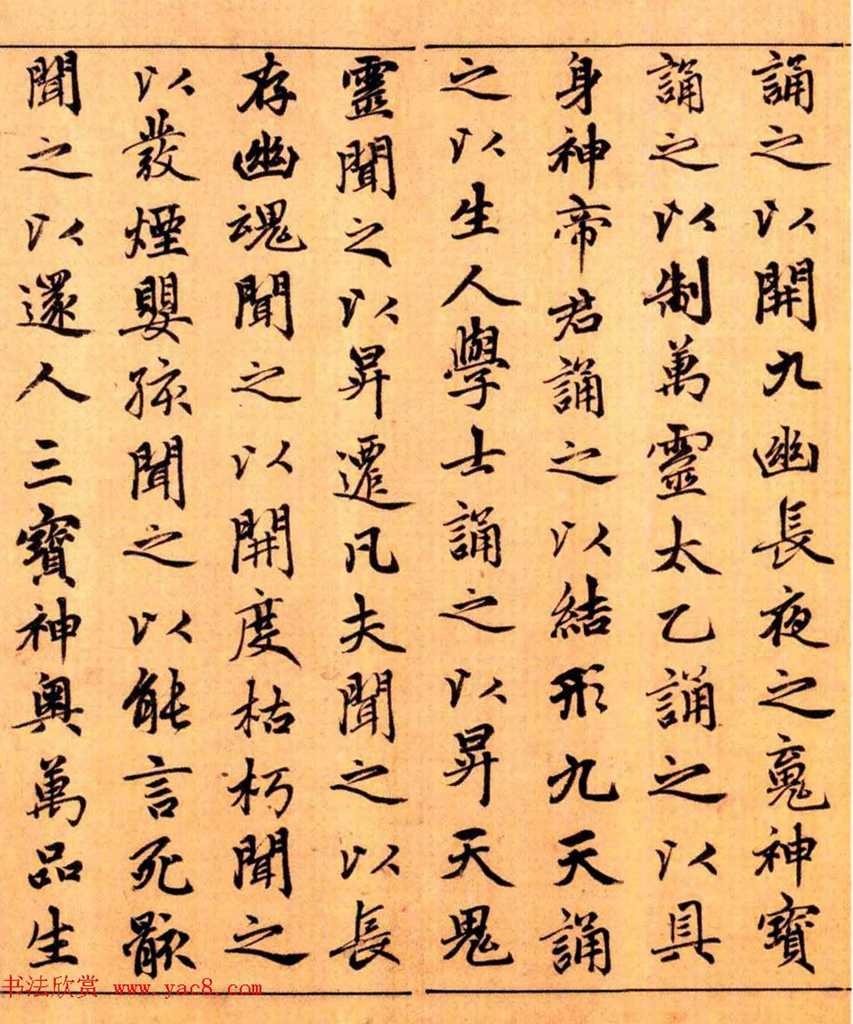 誦之以開九幽長夜之魂神寶
誦之以制萬靈太乙誦之以具
身神帝君誦之以結形九天誦
之以生人學士誦之以昇天鬼
靈聞之以昇遷凡夫聞之以長
存幽魂聞之以開度枯朽聞之
以發煙嬰孩聞之以能言死骸
聞之以還人三寶神奧萬品生
书法欣赏 www.yac8.com